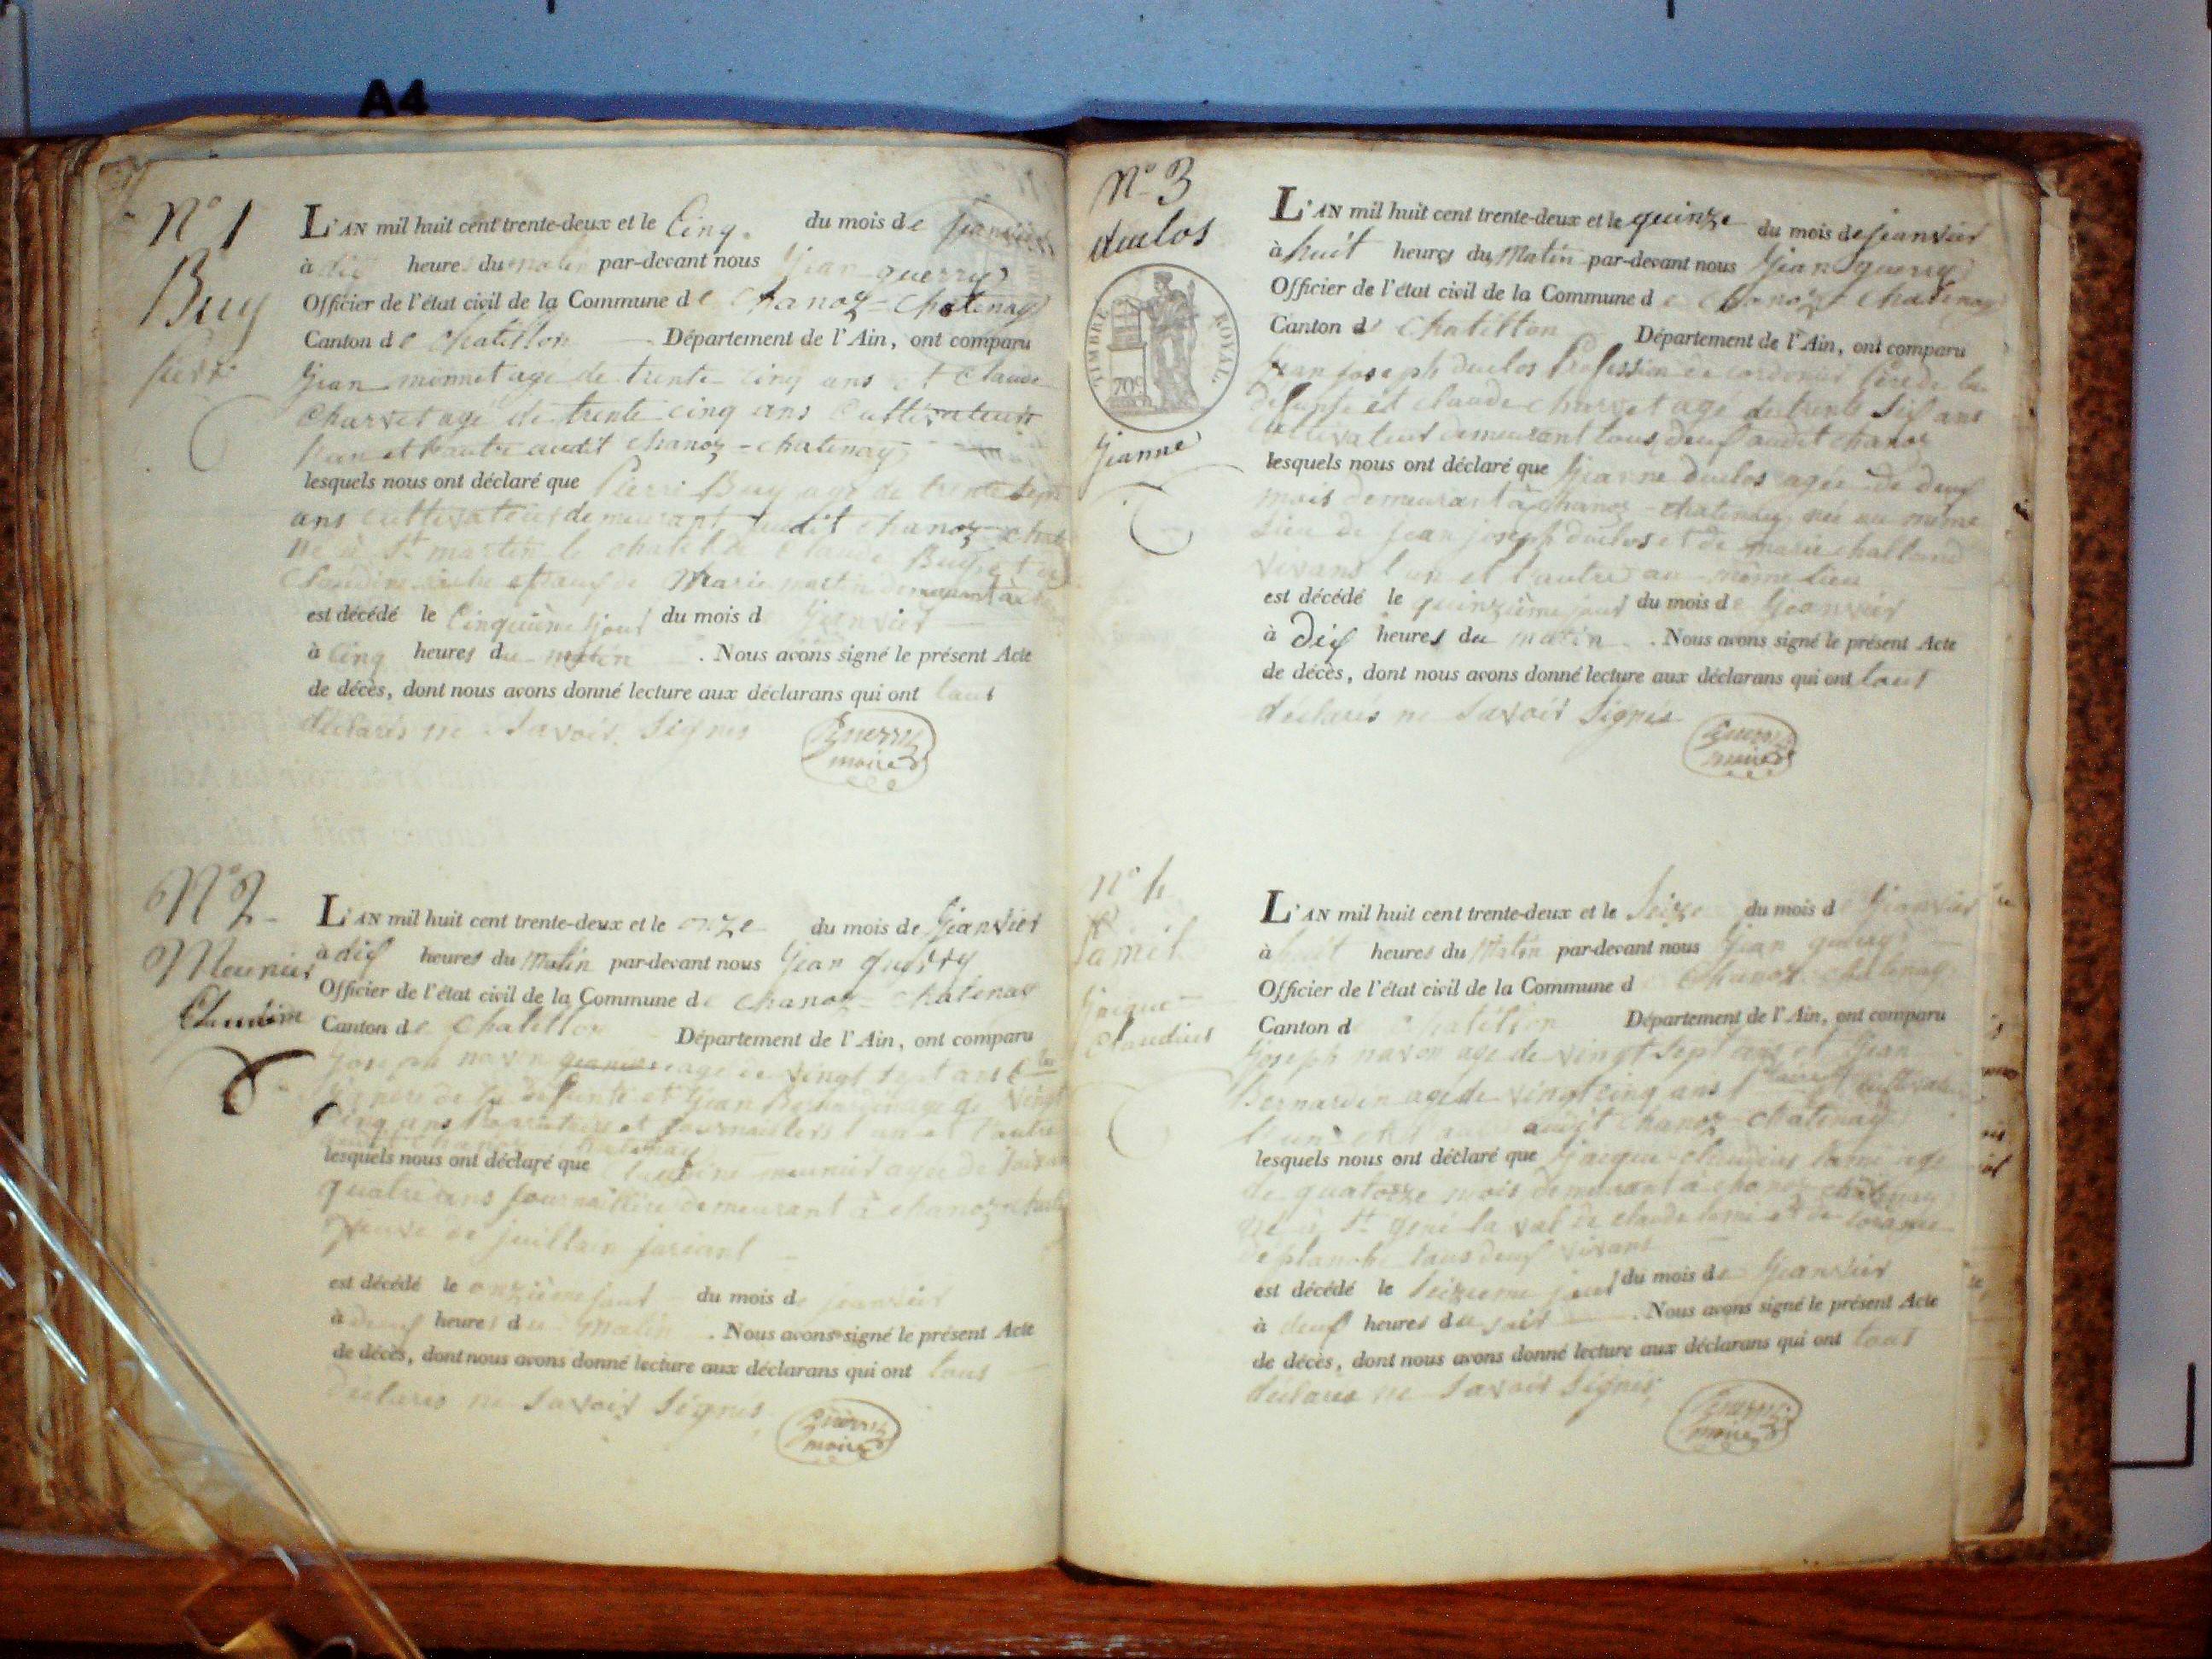 A4
N° 1
Buy
L'AN mil huit cent trente-deux et le Cinq du mois de Janvier
à dix heures du matin par-devant nous Jean guerry
Officier de l'état civil de la Commune de Chanoz-Chatenay
Canton de Chatillon Département de l'Ain, ont comparu
Jean monnet agé de trente cinq ans et Claude
Charvet agé de trente cinq ans Cultivateurs
l'un et l'autre audit Chanoz-Chatenay
lesquels nous ont déclaré que Pierre Buy agé de trente sept
ans cultivateur demeurant audit Chanoz
né à St martin le chatel de Claude Buy et de
Claudine Marie martin demeurant à
est décédé le Cinquième jour du mois de Janvier
à Cinq heures du matin. Nous avons signé le présent Acte
de décès, dont nous avons donné lecture aux déclarans qui ont tous
déclarés ne Savoir Signer
Guerry
maire
N° 2
Meunier
Claudine
L'AN mil huit cent trente-deux et le onze du mois de Janvier
à dix heures du Matin par-devant nous Jean guerry
Officier de l'état civil de la Commune de Chanoz-Chatenay
Canton de Chatillon Département de l'Ain, ont comparu
Joseph navon agé de vingt sept ans
de la defunte et Jean Bernardin agé de vingt
Cinq ans et journaliers l'un et l'autre
audit Chanoz Chatenay
lesquels nous ont déclaré que Claudine meunier agée de
quatre ans journalière demeurant à Chanoz
veuve de juillien
est décédé le onzième jour du mois de janvier
à deux heures du Matin. Nous avons signé le présent Acte
de décès, dont nous avons donné lecture aux déclarans qui ont tous
déclarés ne Savoir Signer
Guerry
maire
N° 3
duclos
TIMBRE ROYAL.
Jeanne
L'AN mil huit cent trente-deux et le quinze du mois de janvier
à huit heures du Matin par-devant nous Jean guerry
Officier de l'état civil de la Commune de Chanoz-Chatenay
Canton de Chatillon Département de l'Ain, ont comparu
Jean joseph duclos Profession de cordonier père de la
defunte et claude charvet agé de trente six ans
cultivateur demeurant tous deux audit Chanoz
lesquels nous ont déclaré que Jeanne duclos agée de deux
mois demeurant à Chanoz-Chatenay née au même
lieu de jean joseph duclos et de marie challand
vivans l'un et l'autre au même lieu
est décédé le quinzième jour du mois de Janvier
à dix heures du matin. Nous avons signé le présent Acte
de décès, dont nous avons donné lecture aux déclarans qui ont tous
déclarés ne Savoir Signer
Guerry
maire
N° 4
Lamé
Jacque
Claudius
L'AN mil huit cent trente-deux et le Seize du mois de Janvier
à huit heures du Matin par-devant nous Jean guerry
Officier de l'état civil de la Commune de Chanoz-chatenay
Canton de Chatillon Département de l'Ain, ont comparu
Joseph navon agé de vingt sept ans et Jean
Bernardin agé de vingt cinq ans
l'un et l'autre audit Chanoz-Chatenay
lesquels nous ont déclaré que Jacque-claudius
de quatorze mois demeurant à Chanoz chatenay
né à St de claude et de
tous deux vivans
est décédé le Seizième jour du mois de Janvier
à deux heures du soir. Nous avons signé le présent Acte
de décès, dont nous avons donné lecture aux déclarans qui ont tous
déclarés ne Savoir Signer
Guerry
maire